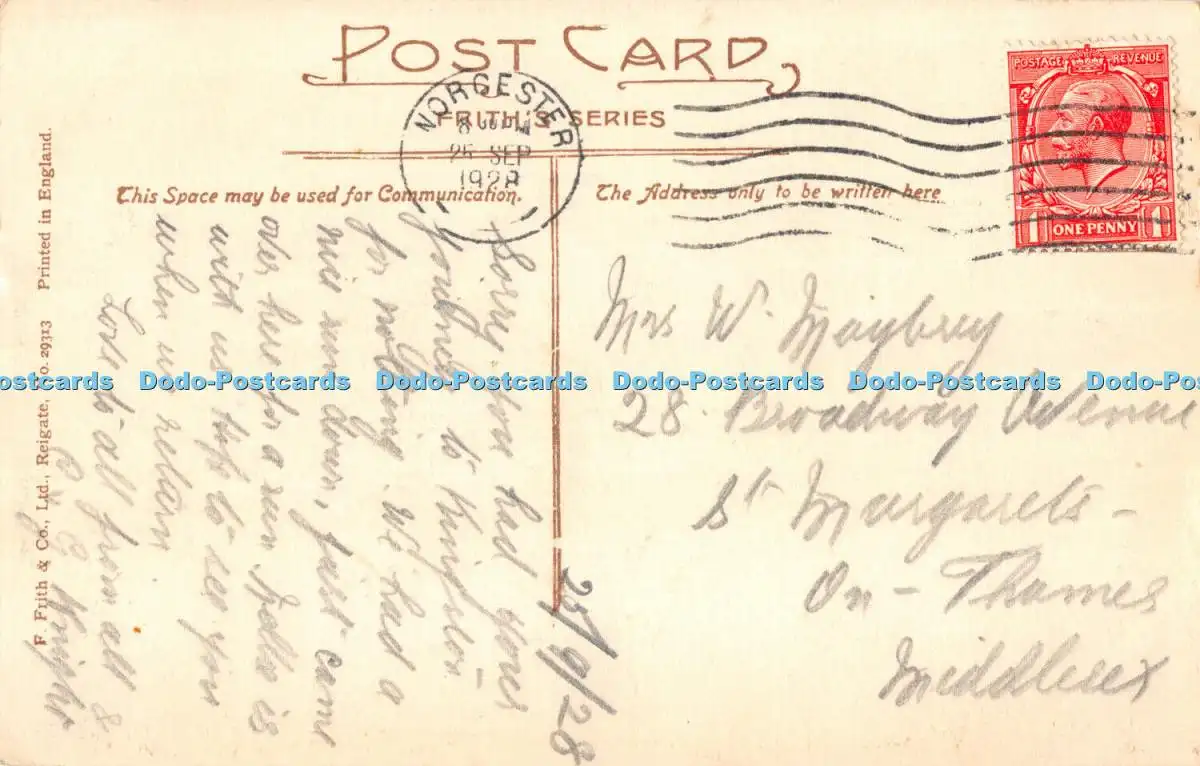 POST CARD
FRITH'S SERIES
WORCESTER
25 SEP
1928
POSTAGE REVENUE
1 ONE PENNY 1
This Space may be used for Communication.
The Address only to be written here.
Sorry you had yours
journey to
for nothing. We had a
nice run down, just came
over here for a run. is
with us hope to see you
when we return
Love to all from all &
Knight
25/9/28
Mrs W. Maybrey
28 Broadway Avenue
St Margarets -
On - Thames
Middlesex
F. Frith & Co., Ltd., Reigate, No. 29313 Printed in England.
ostcards Dodo-Postcards Dodo-Postcards Dodo-Postcards Dodo-Postcards Dodo-Postc